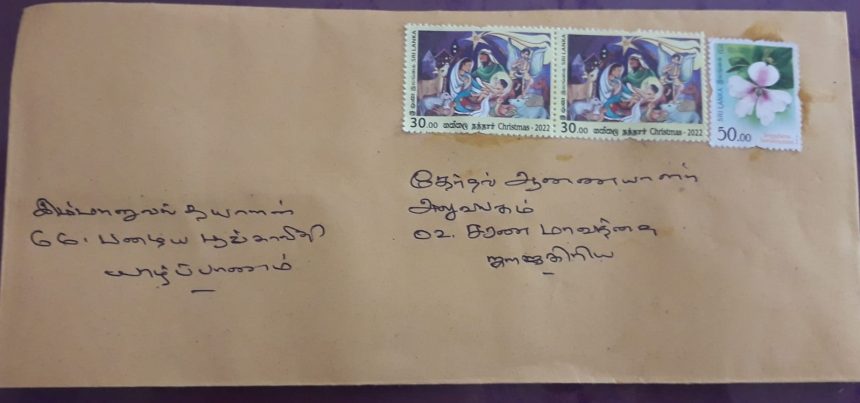 SRI LANKA
30.00 නත්තල් நத்தார் Christmas - 2022
SRI LANKA
30.00 නත්තල් நத்தார் Christmas - 2022
SRI LANKA
50.00
தேர்தல் ஆணையாளர்
அலுவலகம்
02. சரண மாவத்தை
ராஜகிரிய
இம்மானுவல் தயாளன்
66. பண்டிய
யாழ்ப்பாணம்